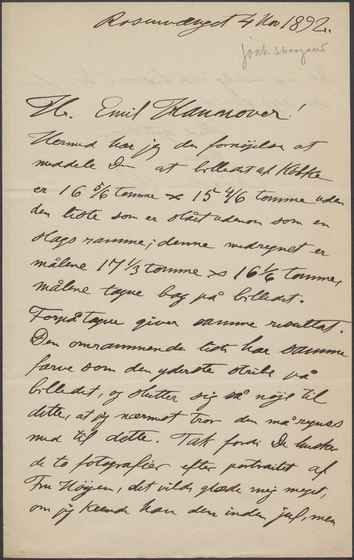 Rosenvænget 4 Nov 1892.
Joak. Skovgaard
Hr. Emil Hannover!
Hermed har jeg den fornøjelse at
meddele Dem at billedet af Købke
er 16 5/6 tomme x 15 4/6 tomme uden
den liste som er slået udenom som en
slags ramme; denne medregnet er
målene 17 1/3 tomme x 16 1/6 tomme,
målene tagne bag på billedet.
Forpå tagne giver samme resultat.
Den omrammende liste har samme
farve som den yderste stribe på
billedet, og slutter sig så nøje til
dette, at jeg nærmest tror den må regnes
med til dette. Tak fordi De husker
de to fotografier efter portraitet af
Fru Høyen, det vilde glæde mig meget,
om jeg kunde have dem inden jul, men